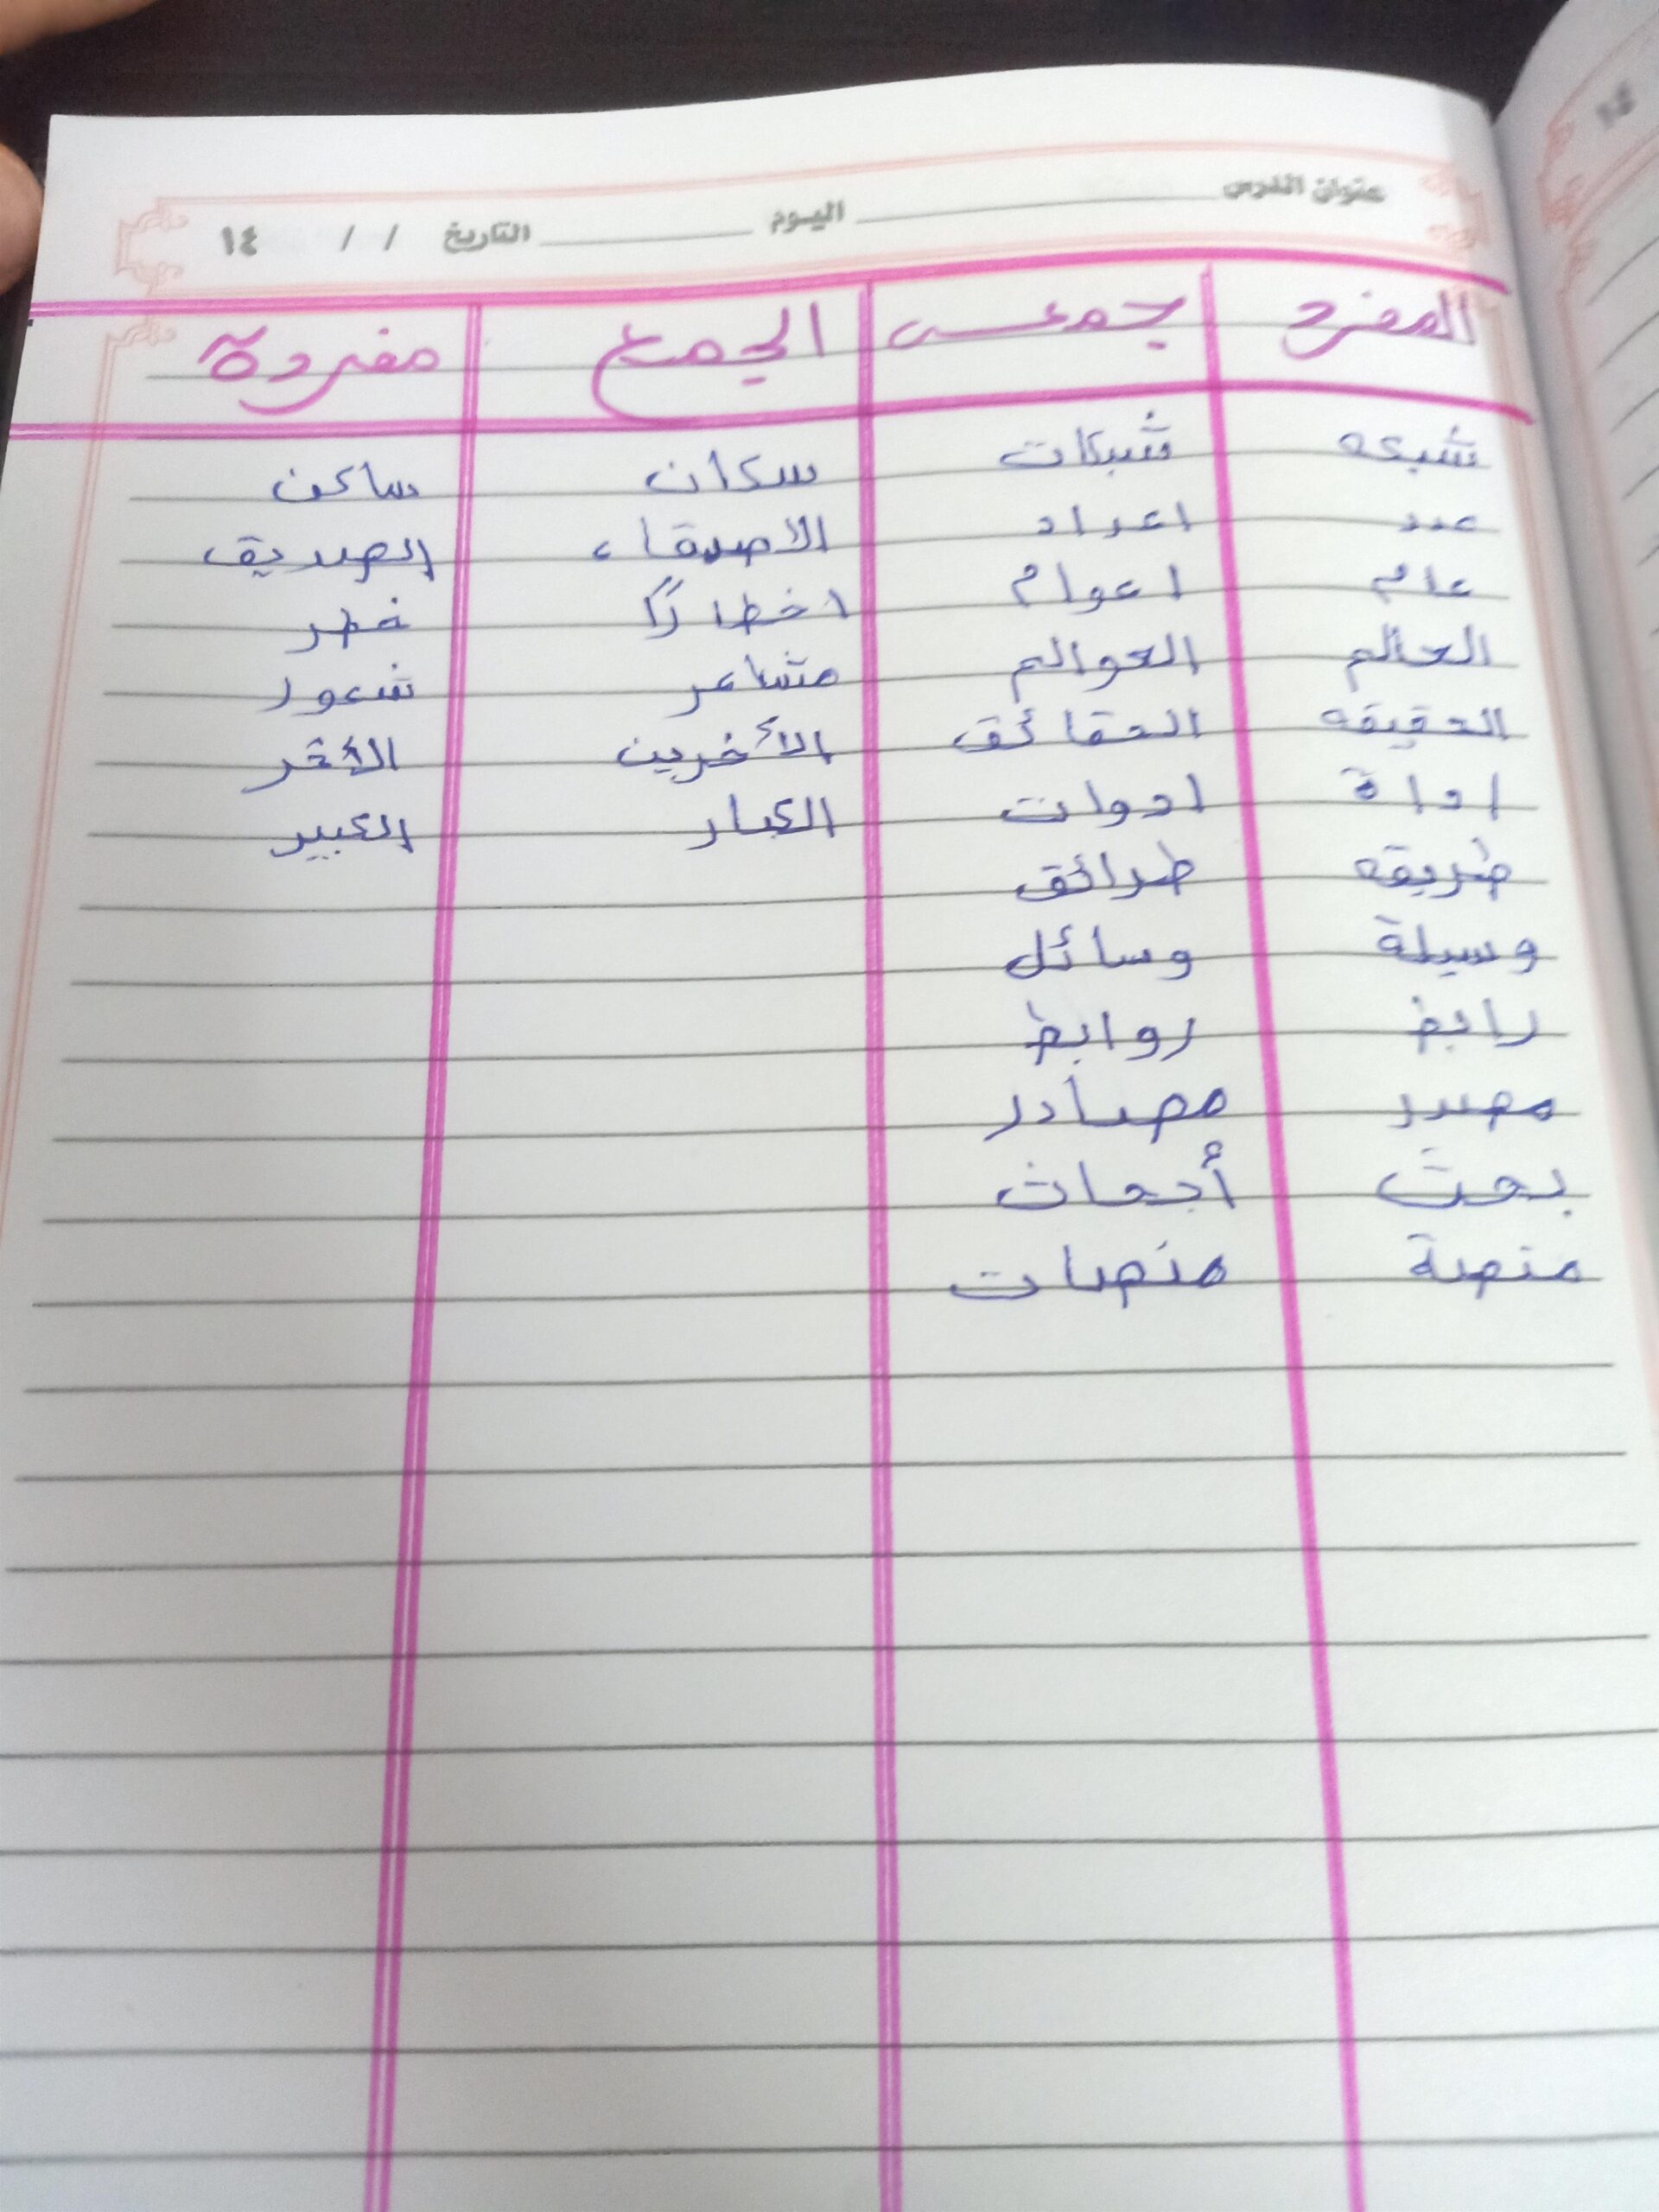 عنوان الدرس اليوم التاريخ / / ١٤
المفرد جمعه الجمع مفرده
شبكه شبكات سكان ساكن
عدد اعداد الاصدقاء الصديق
عام اعوام اخطارًا خطر
العالم العوالم مشاعر شعور
الحقيقه الحقائق الأخرين الأخر
اداة ادوات الكبار الكبير
طريقه طرائق
وسيلة وسائل
رابط روابط
مصدر مصادر
بحث أبحاث
منصة منصات
١٤